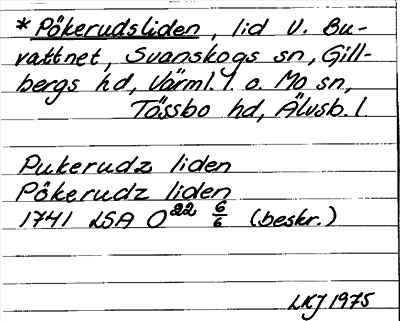 * Pökerudsliden, lid V. Bu-
vattnet, Svanskogs sn, Gill-
bergs hd, Värml. l. o. Mo sn,
Tössbo hd, Älvsb. l.
Pukerudz liden
Pökerudz liden
1741 LSA O22 6/6 (beskr.)
LKJ 1975